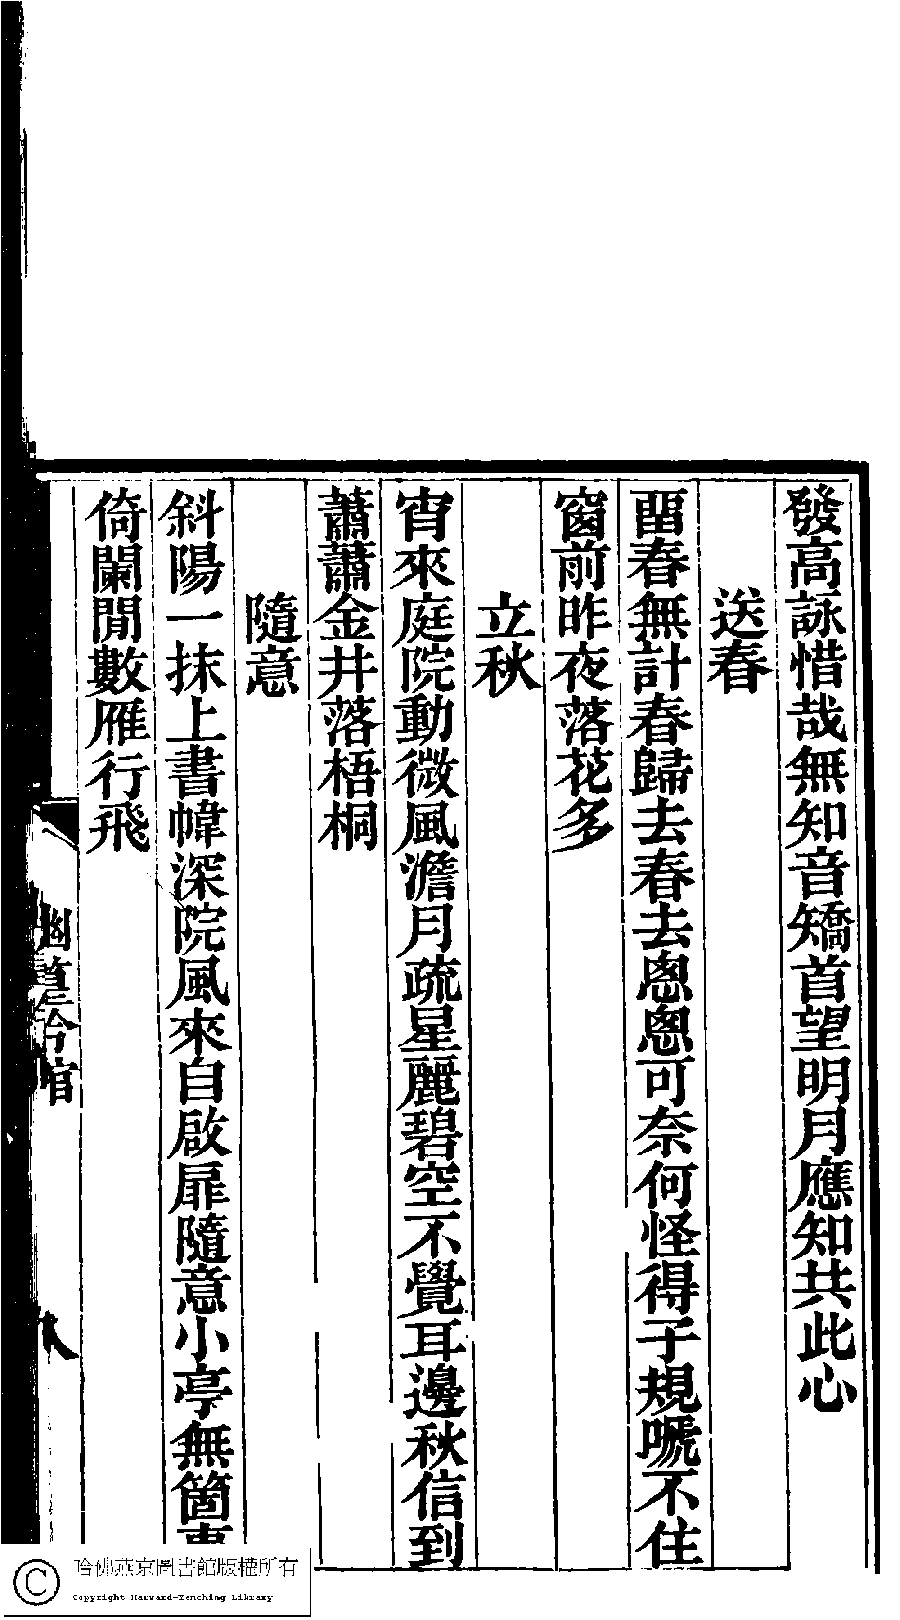 發高詠惜哉無知音矯首望明月應知共此心
送春
畱春無計春歸去春去悤悤可奈何怪得子規嗁不住
窗前昨夜落花多
立秋
宵來庭院動微風澹月疏星麗碧空不覺耳邊秋信到
蕭蕭金井落梧桐
隨意
斜陽一抹上書幃深院風來自啟扉隨意小亭無箇事
倚闌閒數雁行飛
哈佛燕京圖書館版權所有
Copyright Harvard-Yenching Library